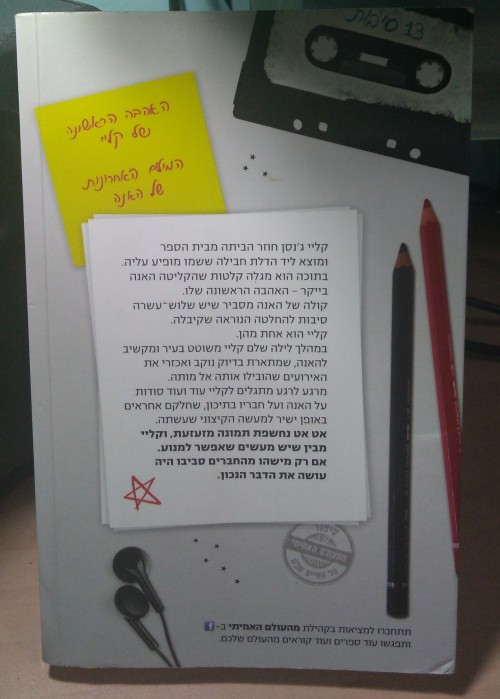 13 סיבות
האהבה הראשונה
של קליי
המילים האחרונות
של האנה
קליי ג'נסן חוזר הביתה מבית הספר
ומוצא ליד הדלת חבילה ששמו מופיע עליה.
בתוכה הוא מגלה קלטות שהקליטה האנה
בייקר – האהבה הראשונה שלו.
קולה של האנה מסביר שיש שלוש־עשרה
סיבות להחלטה הנוראה שקיבלה.
קליי הוא אחת מהן.
במהלך לילה שלם קליי משוטט בעיר ומקשיב
להאנה, שמתארת בדיוק נוקב ואכזרי את
האירועים שהובילו אותה אל מותה.
מרגע לרגע מתגלים לקליי עוד ועוד סודות
על האנה ועל חבריו בתיכון, שחלקם אחראים
באופן ישיר למעשה הקיצוני שעשתה.
אט אט נחשפת תמונה מזעזעת, וקליי
מבין שיש מעשים שאפשר למנוע.
אם רק מישהו מהחברים סביבו היה
עושה את הדבר הנכון.
סיפור
מהעולם האמיתי
תתחברו למציאות בקהילת מהעולם האמיתי ב-f
ותפגשו עוד ספרים ועוד קוראים מהעולם שלכם.